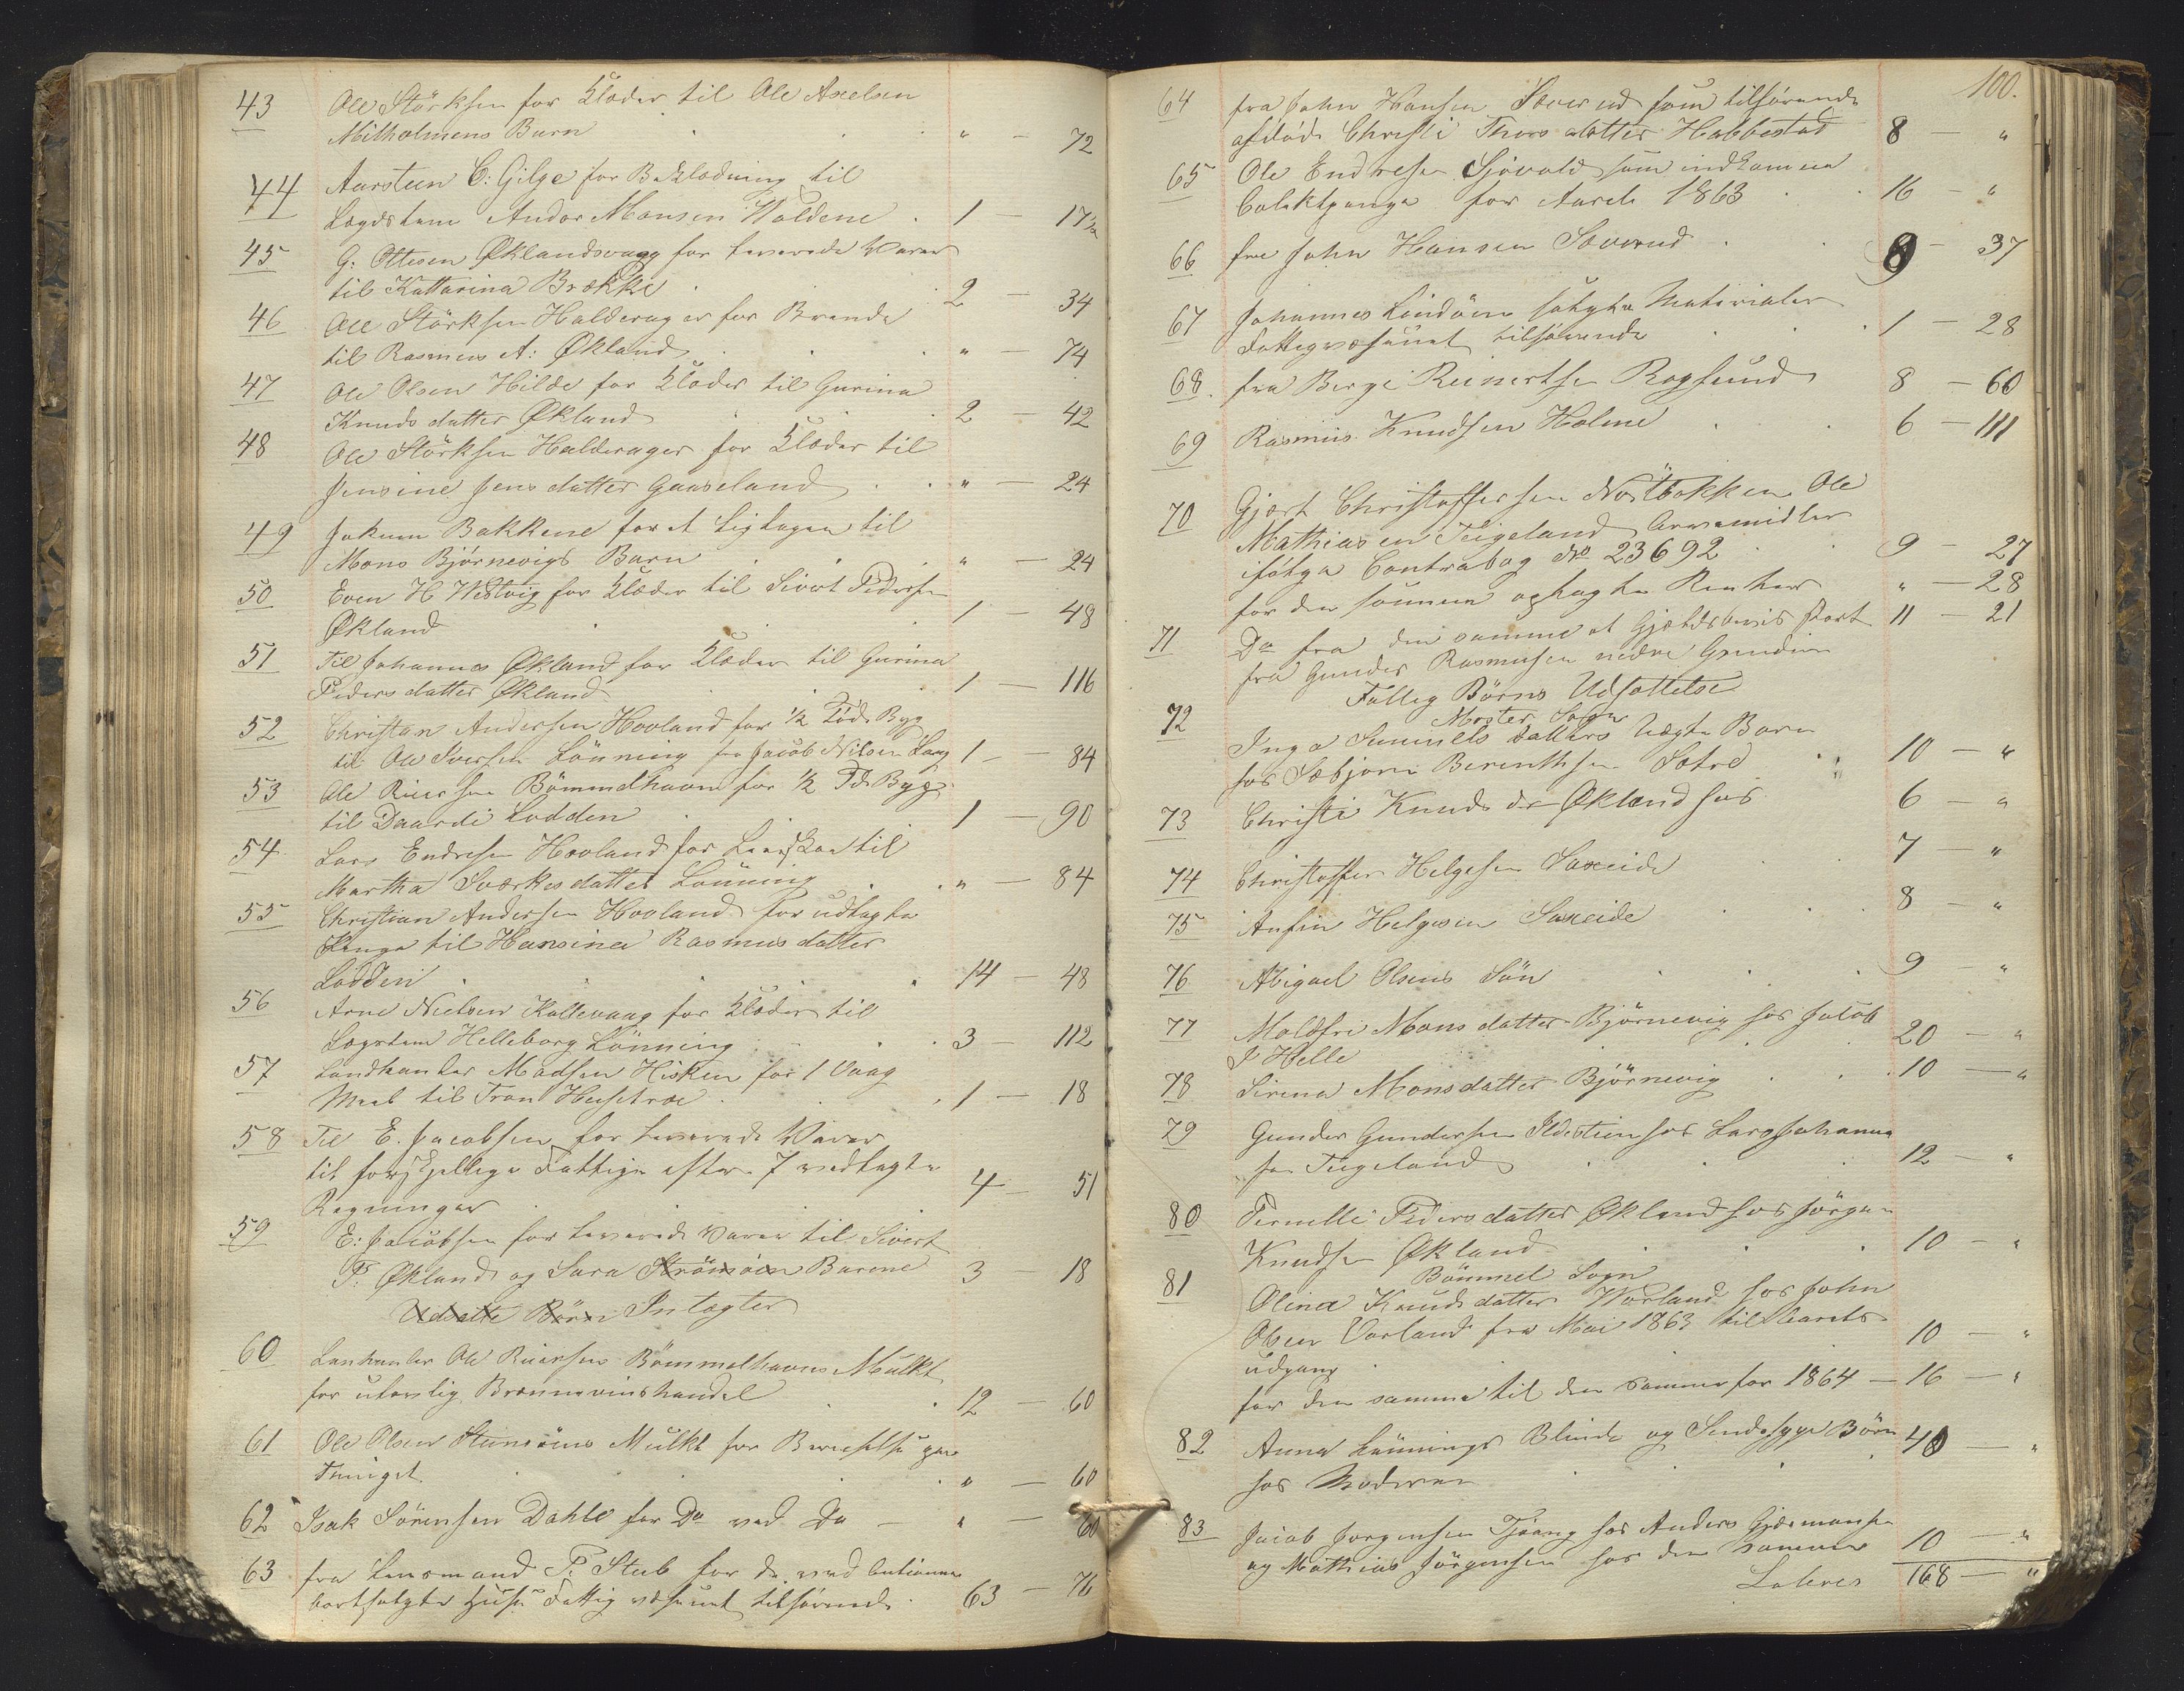 43 Ole Störksen for Klæder til Ole Axelsen
Mitholmens Barn " — 72
44 Aarsteen C: Gilje for Beklædning til
Lægdslem Andor Monsen Woldene 1 — 17½
45 G: Ottesen Øklandsvaag for leverede Varer
til Kattarina Brække 2 — 34
46 Ole Störksen Halderager for Brænde
til Rasmus A: Økland " — 74
47 Ole Olsen Hilde for Klæder til Gurina
Knuds datter Økland 2 — 42
48 Ole Störksen Halderager for Klæder til
Jensine Jens datter Gaaseland " — 24
49 Jokum Bakkene for et Ligtagen til
Mons Björnevigs Barn " — 24
50 Even H Westvig for Klæder til Sivert Pedersen
Økland 1 — 48
51 Til Johannes Økland for Klæder til Gurina
Peders datter Økland 1 — 116
52 Christian Andersen Hovland for ½ Töd Byg
til Ole Iversen Lönning fra Jacob Nilsen Laag 1 — 84
53 Ole Riiersen Bömmelhavn for ½ Td Byg
til Daardi Lodden 1 — 90
54 Lars Endresen Hovland for Liigkae til
Martha Sværkes datter Lönning " — 84
55 Christian Andersen Hovland for udlagte
Penge til Hansine Rasmus datter
Lodden 14 — 48
56 Arne Nielsen Kallevaag for Klæder til
Lægslem Helleborg Lönning 3 — 112
57 Landhandler Madsen Hisken for 1 Vaag
Meel til Tron Husetræe 1 — 18
58 Til E. Jacobsen for leverede Varer
til forskjellige Fattige efter 7 vedlagte
Regninger 4 — 51
59 E: Jacobsen for leverede Varer til Sivert
P: Økland og Sara Strömöen Barene 3 — 18
Udsatte Börn Intægter
60 Lanhanler Ole Riiersen Bömmelhavns Mulkt
for ulovlig Brænnevinshandel 12 — 60
61 Ole Olsen Steinsöens Mulkt for Beruselse paa
Thinget " — 60
62 Isak Sörensen Dahle for Do ved Do — " — 60
63 fra Lensmand P. Stub for de ved Auctionen
bortsolgte Huse Fattigvæsenet tilhörende 63 — 76
100.
64 fra John Hansen Sæverud som tilhörende
afdöde Christi Thors datter Habbestad 8 — "
65 Ole Endresen Sjövold som indkomne
Colektpenge for Aaret 1863 16 — "
66 fra John Hansen Sæverud 9 — 37
67 Johannes Lindöen solgte Materialer
Fattigvæsenet tilhörende 1 — 28
68. fra Berge Reinertsen Rogsund 8 — 60
69 Rasmus Knudsen Holme 6 — 111
70 Gjert Christoffersen Nöstbakken Ole
Mathiasen Teigeland Arvemidler
ifölge Contrabog No 23692 9 — 27
for den samme optagte Renter " — 28
71 Do fra den samme et Gjeldsbevis stort 11 — 21
fra Gunder Rasmusen nedre Grinden
Fattig Börns Udsettelse
Moster Sogn
72 Inga Samuels datters Uægte Barn
hos Sæbjörn Berenthsen Sætre 10 — "
73 Christi Knuds dr Økland hos 6 — "
74 Christoffer Helgesen Saxeide 7 — "
75 Anfin Helgesen Saxeide 8 — "
76 Abigael Olsens Sön 9 — "
77 Moldfri Mons datter Björnevig hos Jacob
J Helle 20 — "
78 Sirena Monsdatter Björnevig 10 — "
79 Gunder Gundersen Ildstien hos Lars Johanne
sen Tegeland 12 — "
80 Pernelle Peders datter Økland hos Jörgen
Knudsen Økland 10 — "
Bömmel Sogn
81 Olina Knuds datter Worland hos John
Olsen Vorland fra Mai 1863 til Aarets
udgang 10 — "
for den samme til den samme for 1864 — 16 — "
82 Anna Lönnings Blinde og Sindssyge Börn
hos Moderen 40 — "
83 Jacob Jorgensen Tjöang hos Anders Gjermansen
og Mathias Jörgensen hos den samme 10 — "
Lateres 168 — "